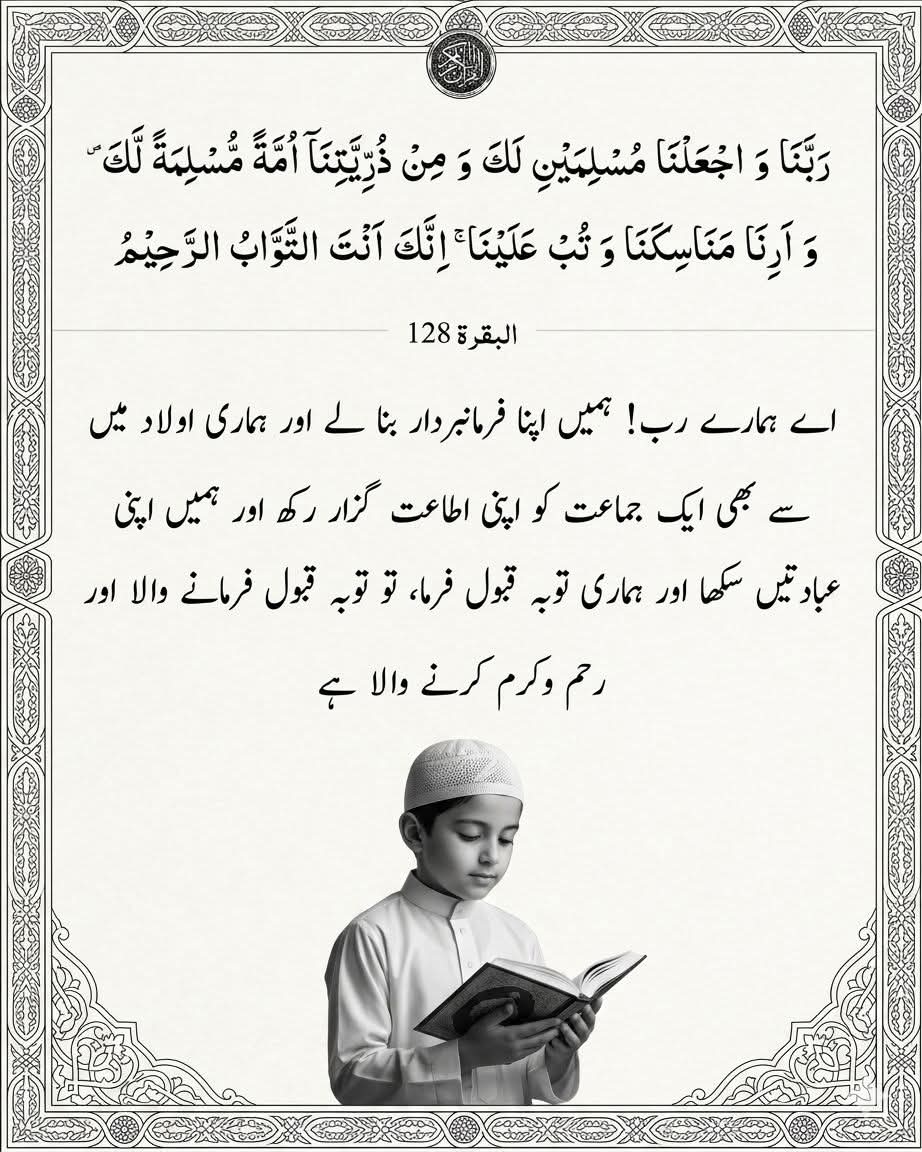 القرآن الكريم
رَبَّنَا وَ اجْعَلْنَا مُسْلِمَيْنِ لَكَ وَ مِنْ ذُرِّيَّتِنَآ اُمَّةً مُّسْلِمَةً لَّكَ ۪
وَ اَرِنَا مَنَاسِكَنَا وَ تُبْ عَلَيْنَا ۚ اِنَّكَ اَنْتَ التَّوَّابُ الرَّحِيْمُ
البقرة 128
اے ہمارے رب! ہمیں اپنا فرمانبردار بنا لے اور ہماری اولاد میں
سے بھی ایک جماعت کو اپنی اطاعت گزار رکھ اور ہمیں اپنی
عبادتیں سکھا اور ہماری توبہ قبول فرما، تو توبہ قبول فرمانے والا اور
رحم وکرم کرنے والا ہے